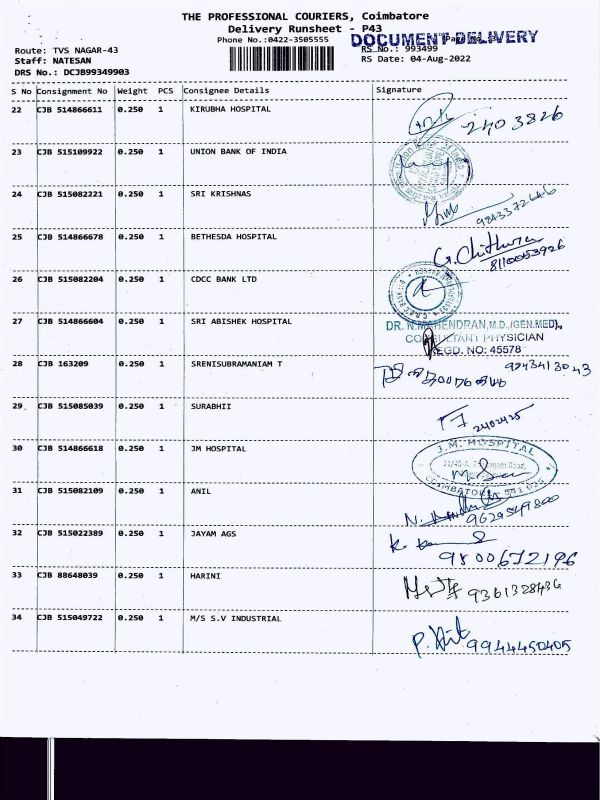 THE PROFESSIONAL COURIERS, Coimbatore
Delivery Runsheet - P43
DOCUMENT DELIVERY
Phone No.:0422-3505555
Route: TVS NAGAR-43
RS No.: 993499
Staff: NATESAN
RS Date: 04-Aug-2022
DRS No.: DCJB99349903
S No Consignment No Weight PCS Consignee Details Signature
22 CJB 514866611 0.250 1 KIRUBHA HOSPITAL
2403826
23 CJB 515109922 0.250 1 UNION BANK OF INDIA
24 CJB 515082221 0.250 1 SRI KRISHNAS
25 CJB 514866678 0.250 1 BETHESDA HOSPITAL
G. Chithura
8110053926
26 CJB 515082204 0.250 1 CDCC BANK LTD
27 CJB 514866604 0.250 1 SRI ABISHEK HOSPITAL
DR. N.MAHENDRAN,M.D.,(GEN.MED).,
CONSULTANT PHYSICIAN
REGD. NO: 45578
28 CJB 163209 0.250 1 SRENISUBRAMANIAM T
29 CJB 515085039 0.250 1 SURABHII
2402425
30 CJB 514866618 0.250 1 JM HOSPITAL
J.M. HOSPITAL
COIMBATORE
31 CJB 515082109 0.250 1 ANIL
9629549800
32 CJB 515022389 0.250 1 JAYAM AGS
9800672196
33 CJB 88648039 0.250 1 HARINI
9361328436
34 CJB 515049722 0.250 1 M/S S.V INDUSTRIAL
9944450405